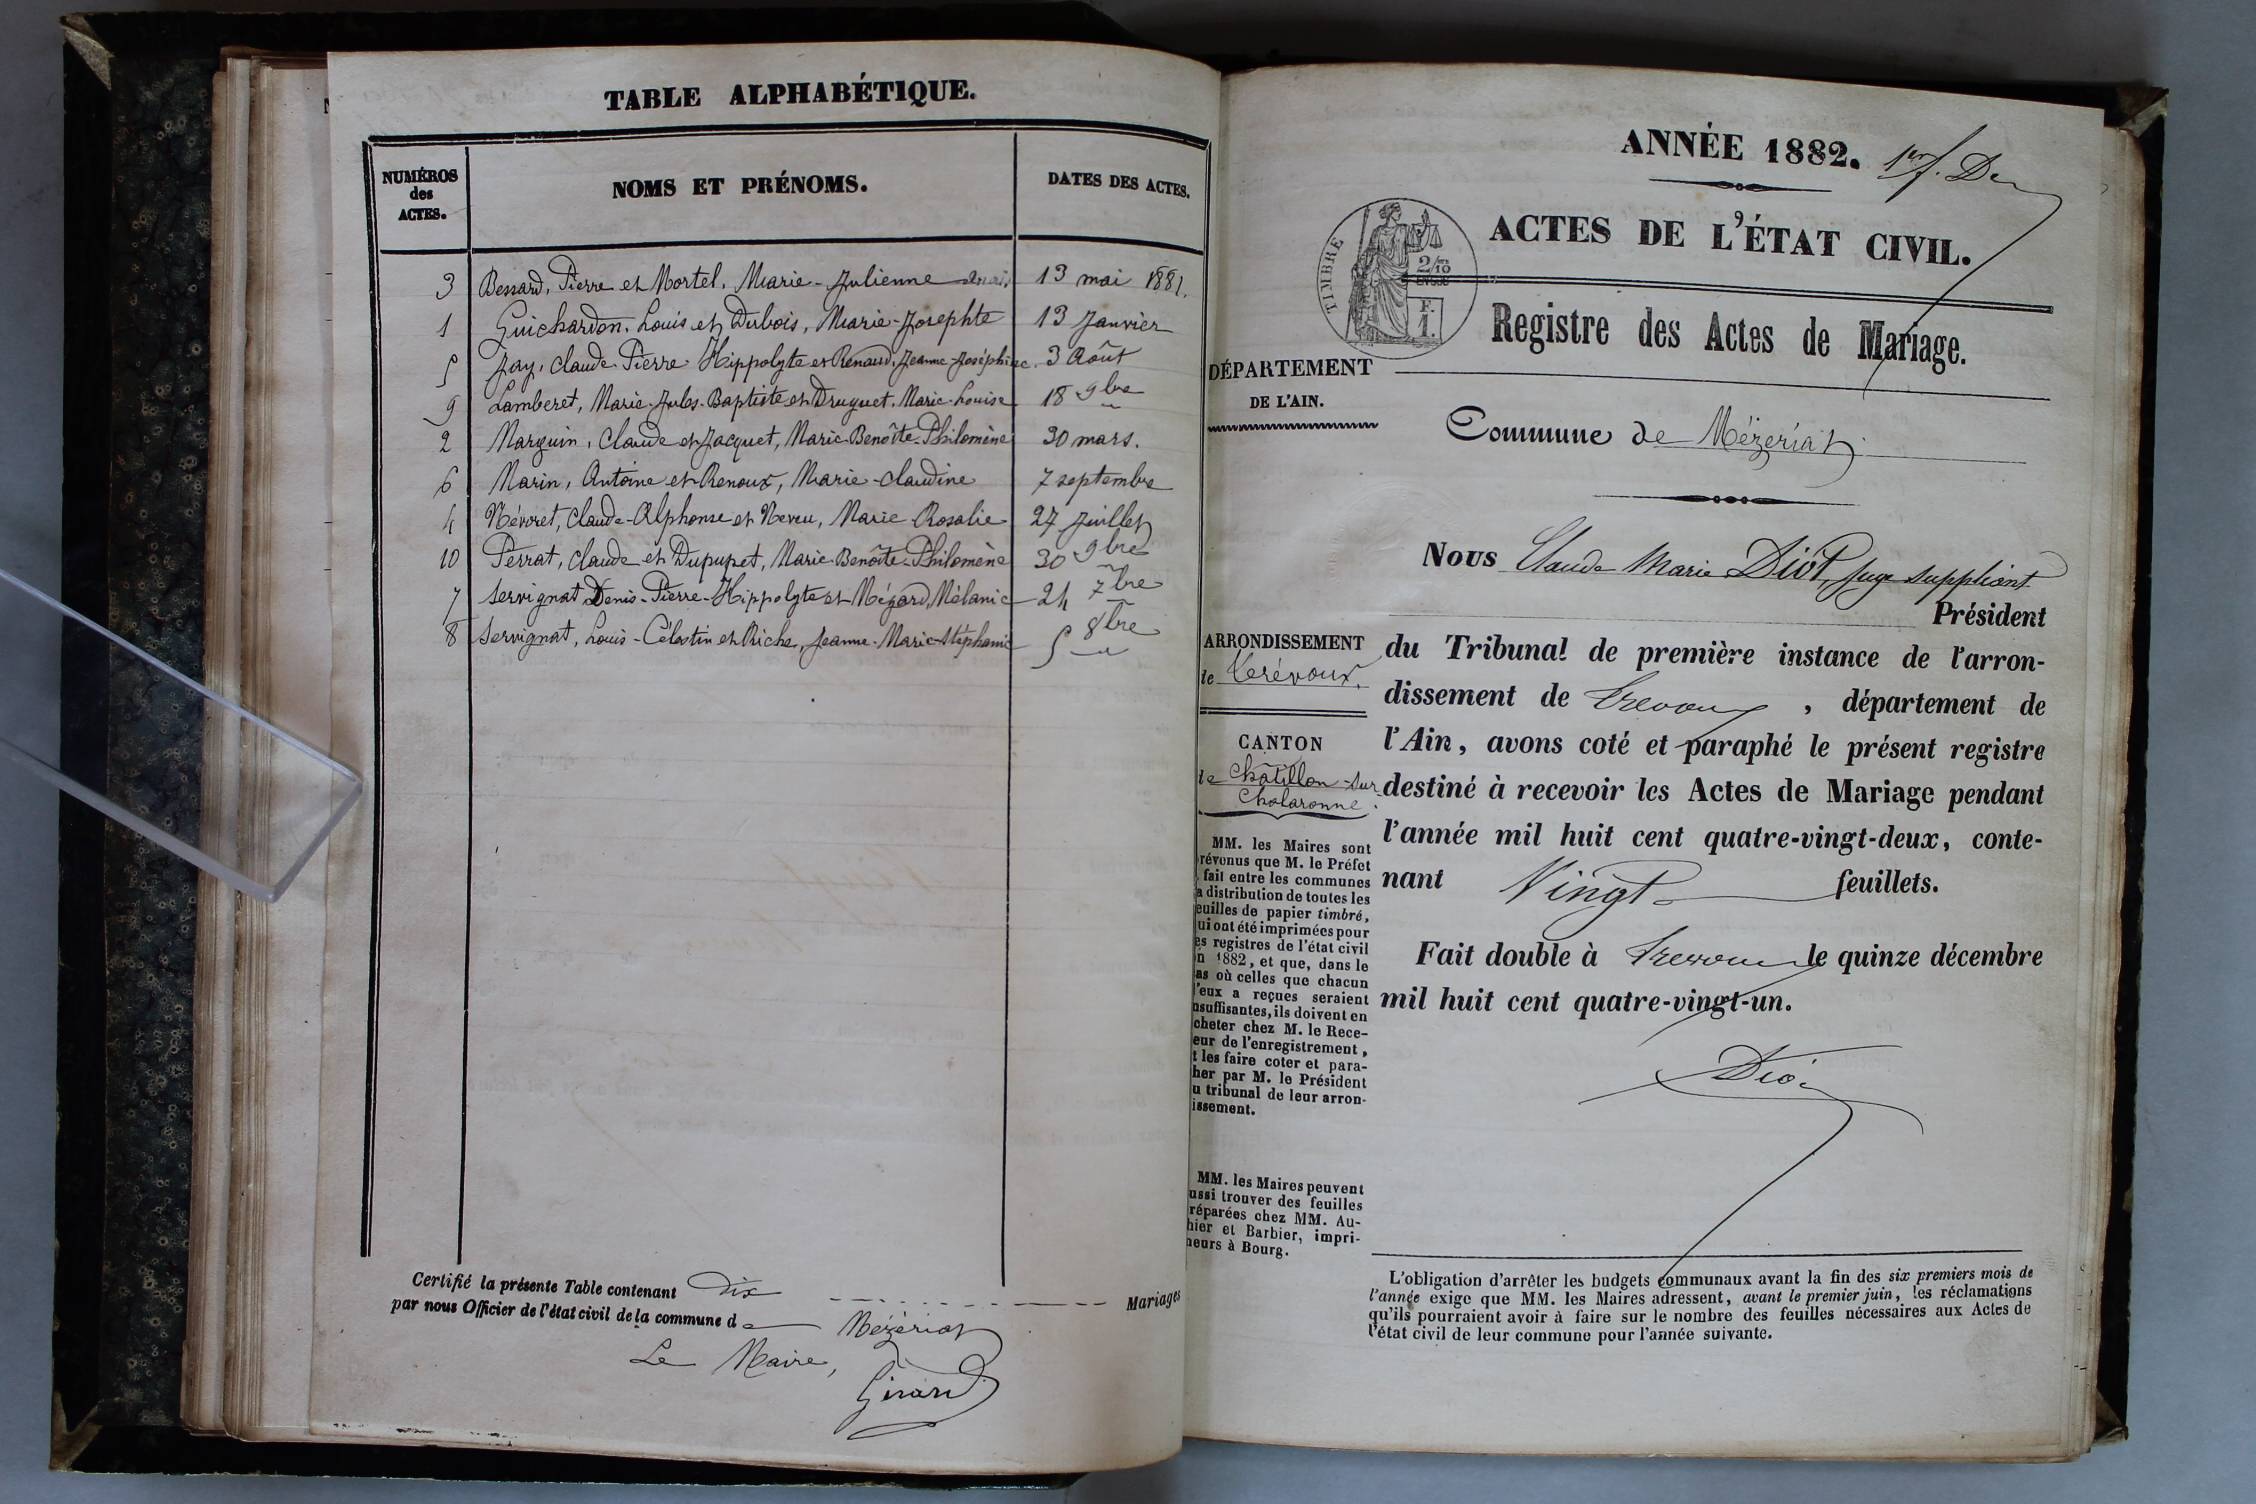 TABLE ALPHABÉTIQUE.
NUMÉROS
des
ACTES.
NOMS ET PRÉNOMS.
DATES DES ACTES.
3 Bessard, Pierre et Mortel, Marie-Julienne 13 mai 1881.
1 Guichardon, Louis et Dubois, Marie-Josephte 13 Janvier
5 Jay, Claude-Pierre Hippolyte et Renaud, Jeanne-Joséphine 3 Août
9 Lamberet, Marie-Jules-Baptiste et Druguet, Marie-Louise 18 9bre
2 Marguin, Claude et Jacquet, Marie-Benoîte-Philomène 30 mars.
6 Marin, Antoine et Renoux, Marie-Claudine 7 septembre
4 Névoret, Claude-Alphonse et Neveu, Marie-Rosalie 27 Juillet
10 Perrat, Claude et Dupupet, Marie-Benoîte-Philomène 30 9bre
7 Servignat Denis-Pierre-Hippolyte et Mégard, Mélanie 24 7bre
8 Servignat, Louis-Célestin et Riche, Jeanne-Marie-Stéphanie 5 8bre
Certifié la présente Table contenant Dix Mariages
par nous Officier de l'état civil de la commune de Mézériat
Le Maire,
Girard
ANNÉE 1882. 1er f.
ACTES DE L'ÉTAT CIVIL.
TIMBRE
2/10
EN SUS
F.
1.
Registre des Actes de Mariage.
DÉPARTEMENT
DE L'AIN.
Commune de Mézériat
Nous Claude Marie Diot, juge suppléant
Président
ARRONDISSEMENT
de Trévoux.
CANTON
de Châtillon-sur-
Chalaronne.
du Tribunal de première instance de l'arron-
dissement de Trevoux, département de
l'Ain, avons coté et paraphé le présent registre
destiné à recevoir les Actes de Mariage pendant
l'année mil huit cent quatre-vingt-deux, conte-
nant Vingt feuillets.
Fait double à Trevoux le quinze décembre
mil huit cent quatre-vingt-un.
Diot
MM. les Maires sont
révenus que M. le Préfet
fait entre les communes
a distribution de toutes les
euilles de papier timbré,
ui ont été imprimées pour
es registres de l'état civil
n 1882, et que, dans le
as où celles que chacun
'eux a reçues seraient
nsuffisantes, ils doivent en
cheter chez M. le Rece-
eur de l'enregistrement,
t les faire coter et para-
her par M. le Président
u tribunal de leur arron-
issement.
MM. les Maires peuvent
ussi trouver des feuilles
réparées chez MM. Au-
hier et Barbier, impri-
neurs à Bourg.
L'obligation d'arrêter les budgets communaux avant la fin des six premiers mois de
l'année exige que MM. les Maires adressent, avant le premier juin, les réclamations
qu'ils pourraient avoir à faire sur le nombre des feuilles nécessaires aux Actes de
l'état civil de leur commune pour l'année suivante.